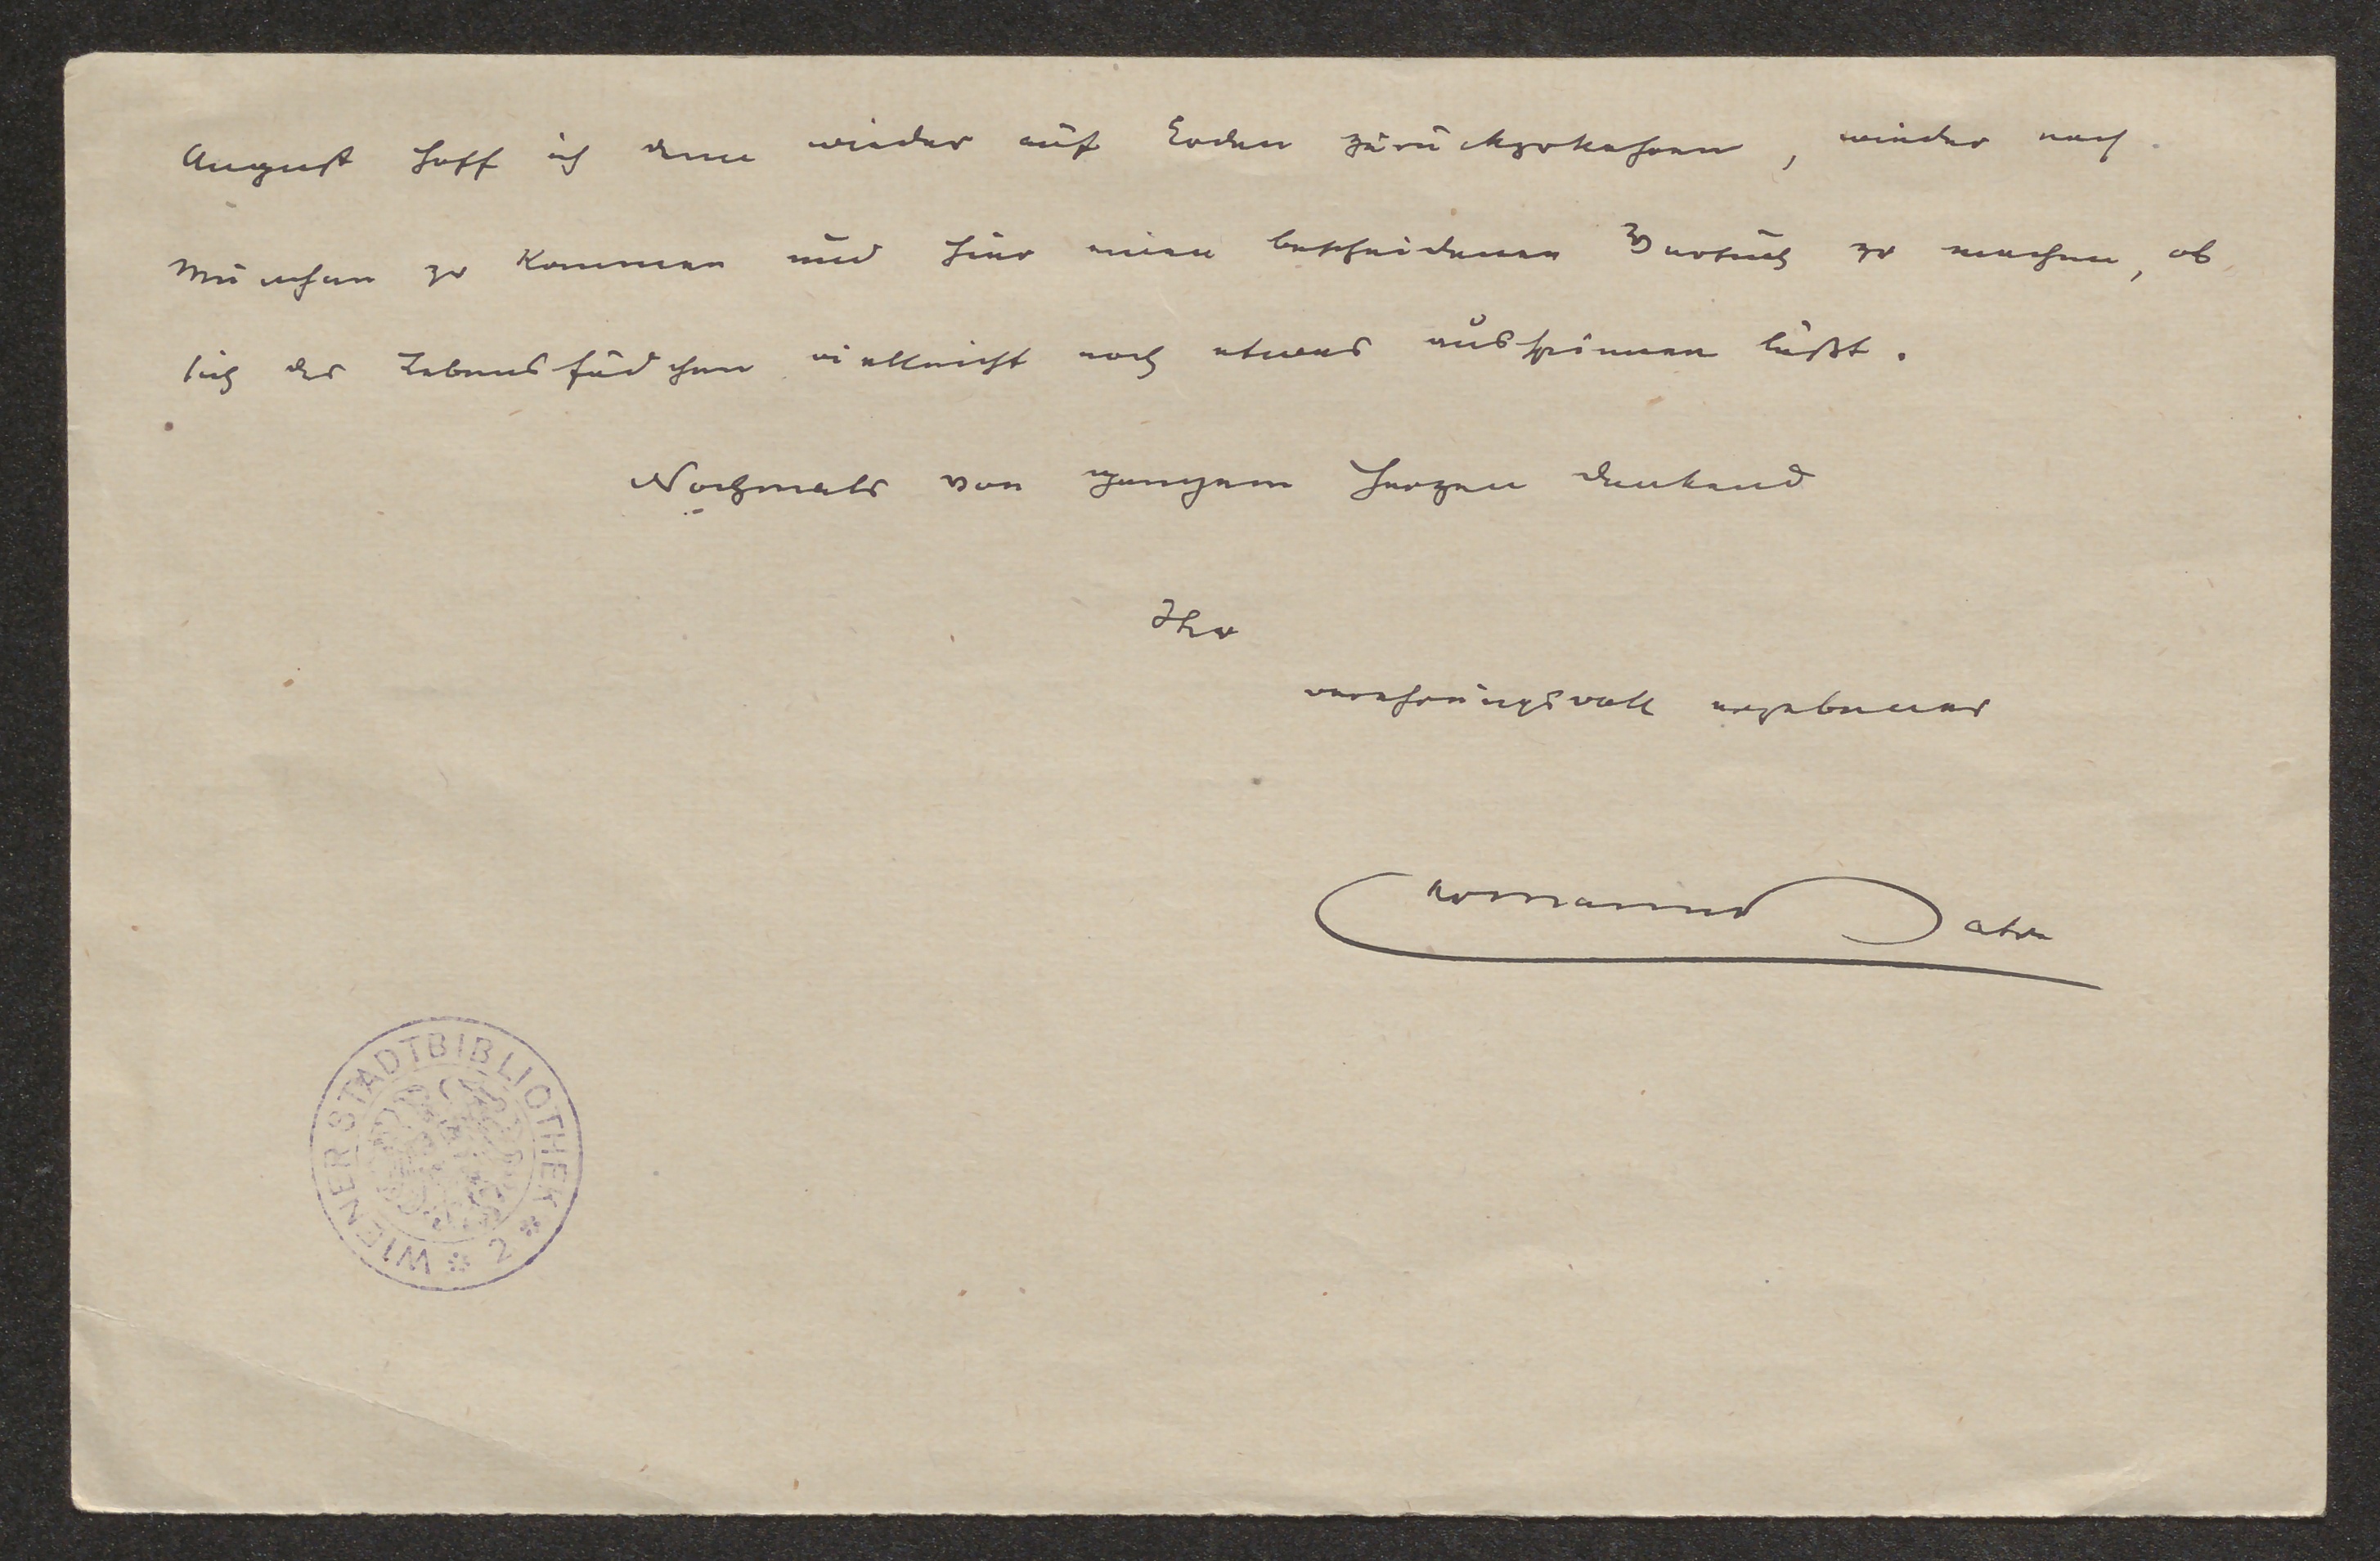 August hoff ich dann wieder auf Erden zurückzukehren, wieder nach
München zu kommen und hier einen bescheidenen Versuch zu machen, ob
sich das Lebensfädchen vielleicht noch etwas ausspinnen läßt.
Nochmals von ganzem Herzen dankend
Ihr
verehrungsvoll ergebener
Hermann Bahr
WIENER STADTBIBLIOTHEK * 2 *